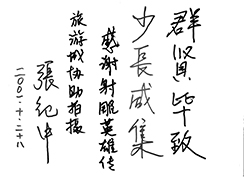 群賢毕致
少長咸集
感谢射雕英雄传
旅游城协助拍摄
張紀中
二〇〇一·十·二十八